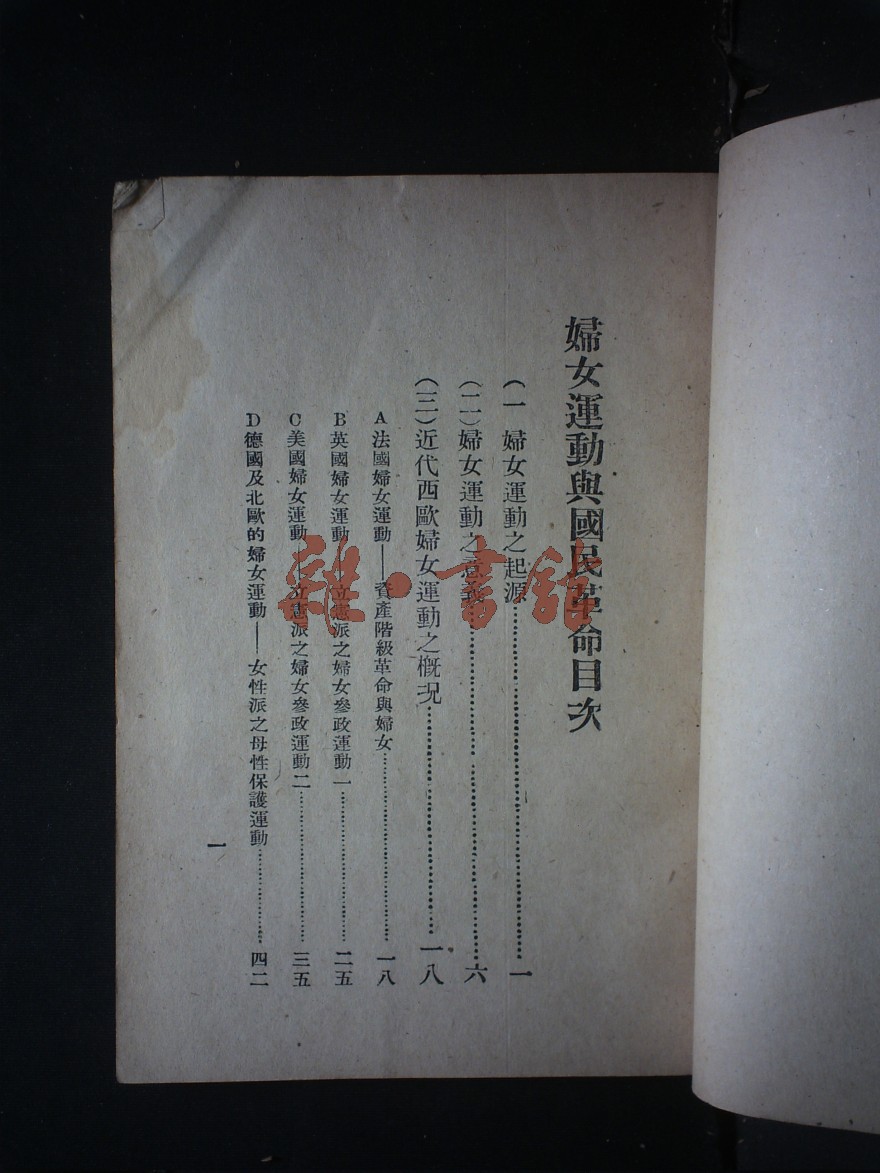 婦女運動與國民革命目次
(一 婦女運動之起源……一
(二)婦女運動之意義……六
(三)近代西歐婦女運動之概況……一八
A法國婦女運動——資產階級革命與婦女……一八
B英國婦女運動——立憲派之婦女參政運動一……二五
C美國婦女運動——立憲派之婦女參政運動二……三五
D德國及北歐的婦女運動——女性派之母性保護運動……四二
一
雜·書館